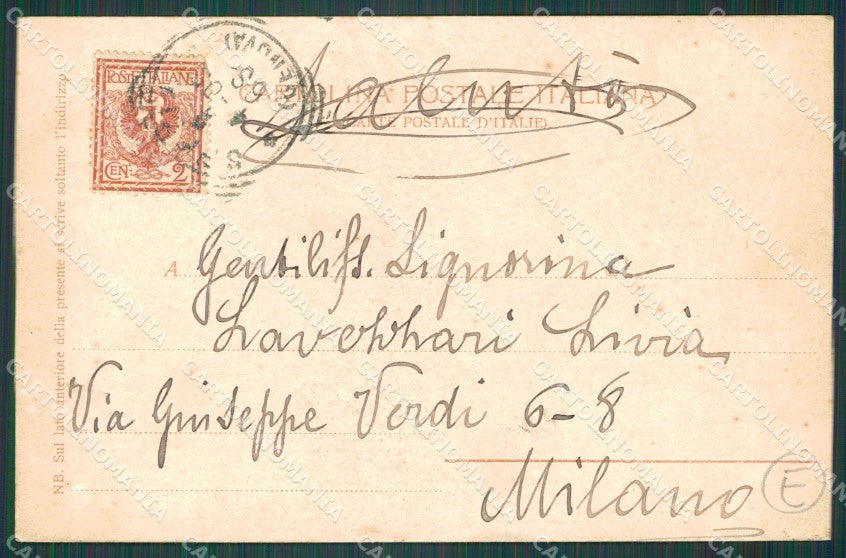 POSTE ITALIANE
CEN. 2
CARTOLINA POSTALE ITALIANA
(CARTE POSTALE D'ITALIE)
Saluti
A. Gentiliss. Signorina
Livia
Via Giuseppe Verdi 6-8
Milano
E
NB. Sul lato anteriore della presente si scrive soltanto l'indirizzo
CARTOLINOMANIA